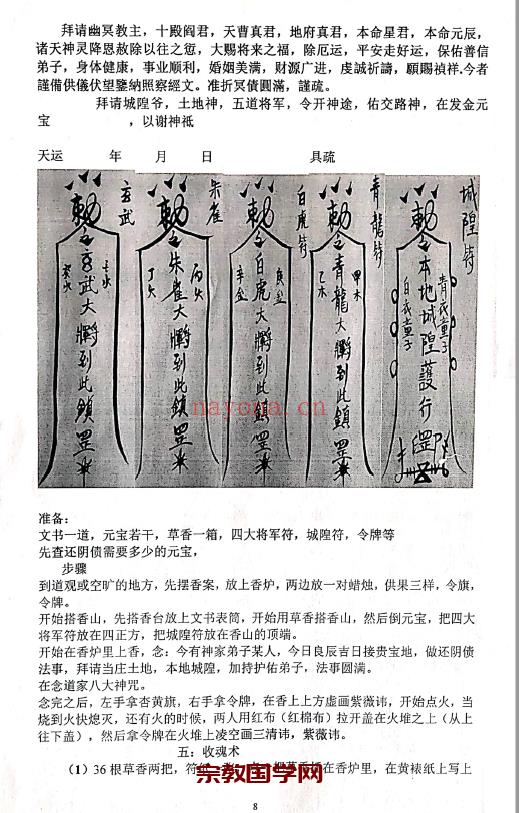 拜请幽冥教主，十殿阎君，天曹真君，地府真君，本命星君，本命元辰，
诸天神灵降恩赦除以往之愆，大赐将来之福，除厄运，平安走好运，保佑善信
弟子，身体健康，事业顺利，婚姻美满，财源广进，虔誠祈禱，願賜禎祥.今者
謹備供儀伏望鑒納照察經文。准折冥債圓滿，謹疏。
拜请城隍爷，土地神，五道将军，令开神途，佑交路神，在发金元
宝　　　　　，以谢神祗
天运　　年　　月　　日　　　　　具疏
城隍符
敕令本地城隍護行罡
青衣童子
白衣童子
青龍符
敕令青龍大將到此鎖罡
甲木
乙木
白虎符
敕令白虎大將到此鎖罡
庚金
辛金
朱雀
敕令朱雀大將到此鎖罡
丙火
丁火
玄武
敕令玄武大將到此鎖罡
壬水
癸水
nayona.cn
准备：
文书一道，元宝若干，草香一箱，四大将军符，城隍符，令牌等
先查还阴债需要多少的元宝，
步骤
到道观或空旷的地方，先摆香案，放上香炉，两边放一对蜡烛，供果三样，令旗，
令牌。
开始搭香山，先搭香台放上文书表筒，开始用草香搭香山，然后倒元宝，把四大
将军符放在四正方，把城隍符放在香山的顶端。
开始在香炉里上香，念：今有神家弟子某人，今日良辰吉日接贵宝地，做还阴债
法事，拜请当庄土地，本地城隍，加持护佑弟子，法事圆满。
在念道家八大神咒。
念完之后，左手拿杏黄旗，右手拿令牌，在香上上方虚画紫薇讳，开始点火，当
烧到火快熄灭，还有火的时候，两人用红布（红棉布）拉开盖在火堆之上（从上
往下盖），然后拿令牌在火堆上凌空画三清讳，紫薇讳。
五：收魂术
（1）36 根草香两把，符纸 在香炉里，在黄裱纸上写上
宗教国学网
8